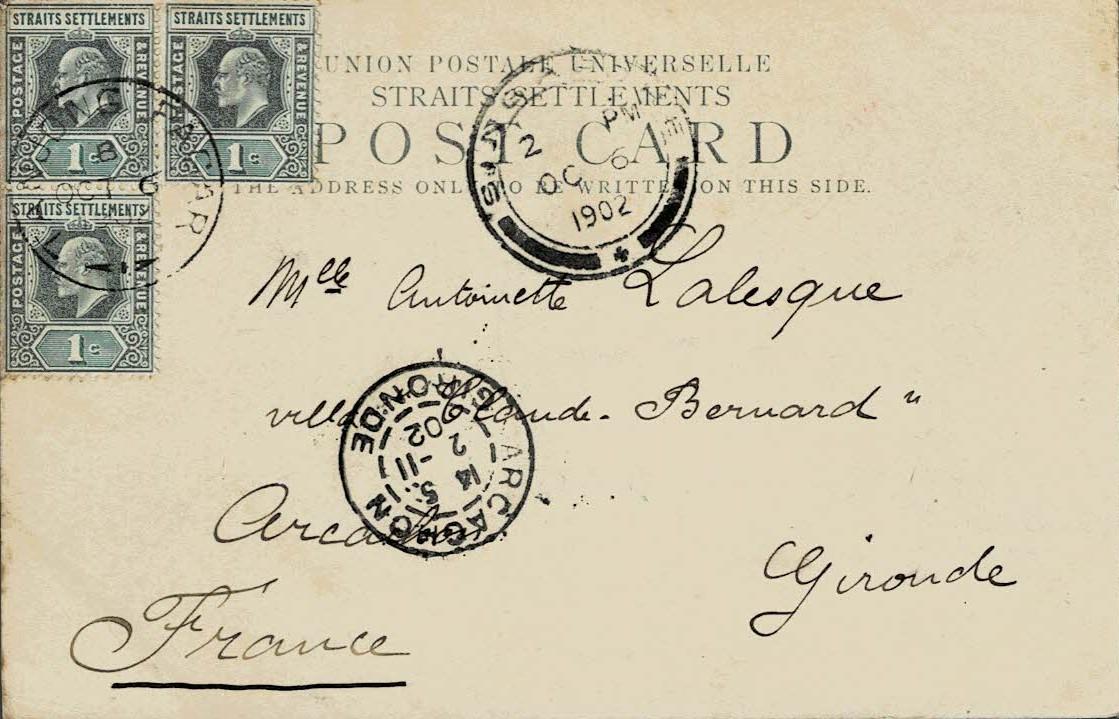 STRAITS SETTLEMENTS
POSTAGE & REVENUE
1c
STRAITS SETTLEMENTS
POSTAGE & REVENUE
1c
STRAITS SETTLEMENTS
POSTAGE & REVENUE
1c
TANJONG PAGAR
OCT 6
UNION POSTALE UNIVERSELLE
STRAITS SETTLEMENTS
POST CARD
THE ADDRESS ONLY TO BE WRITTEN ON THIS SIDE.
2 PM
OC 6
1902
Mlle Antoinette Lalesque
villa "Claude-Bernard"
ARCACHON
GIRONDE
2 -11
02
Arcachon
Gironde
France